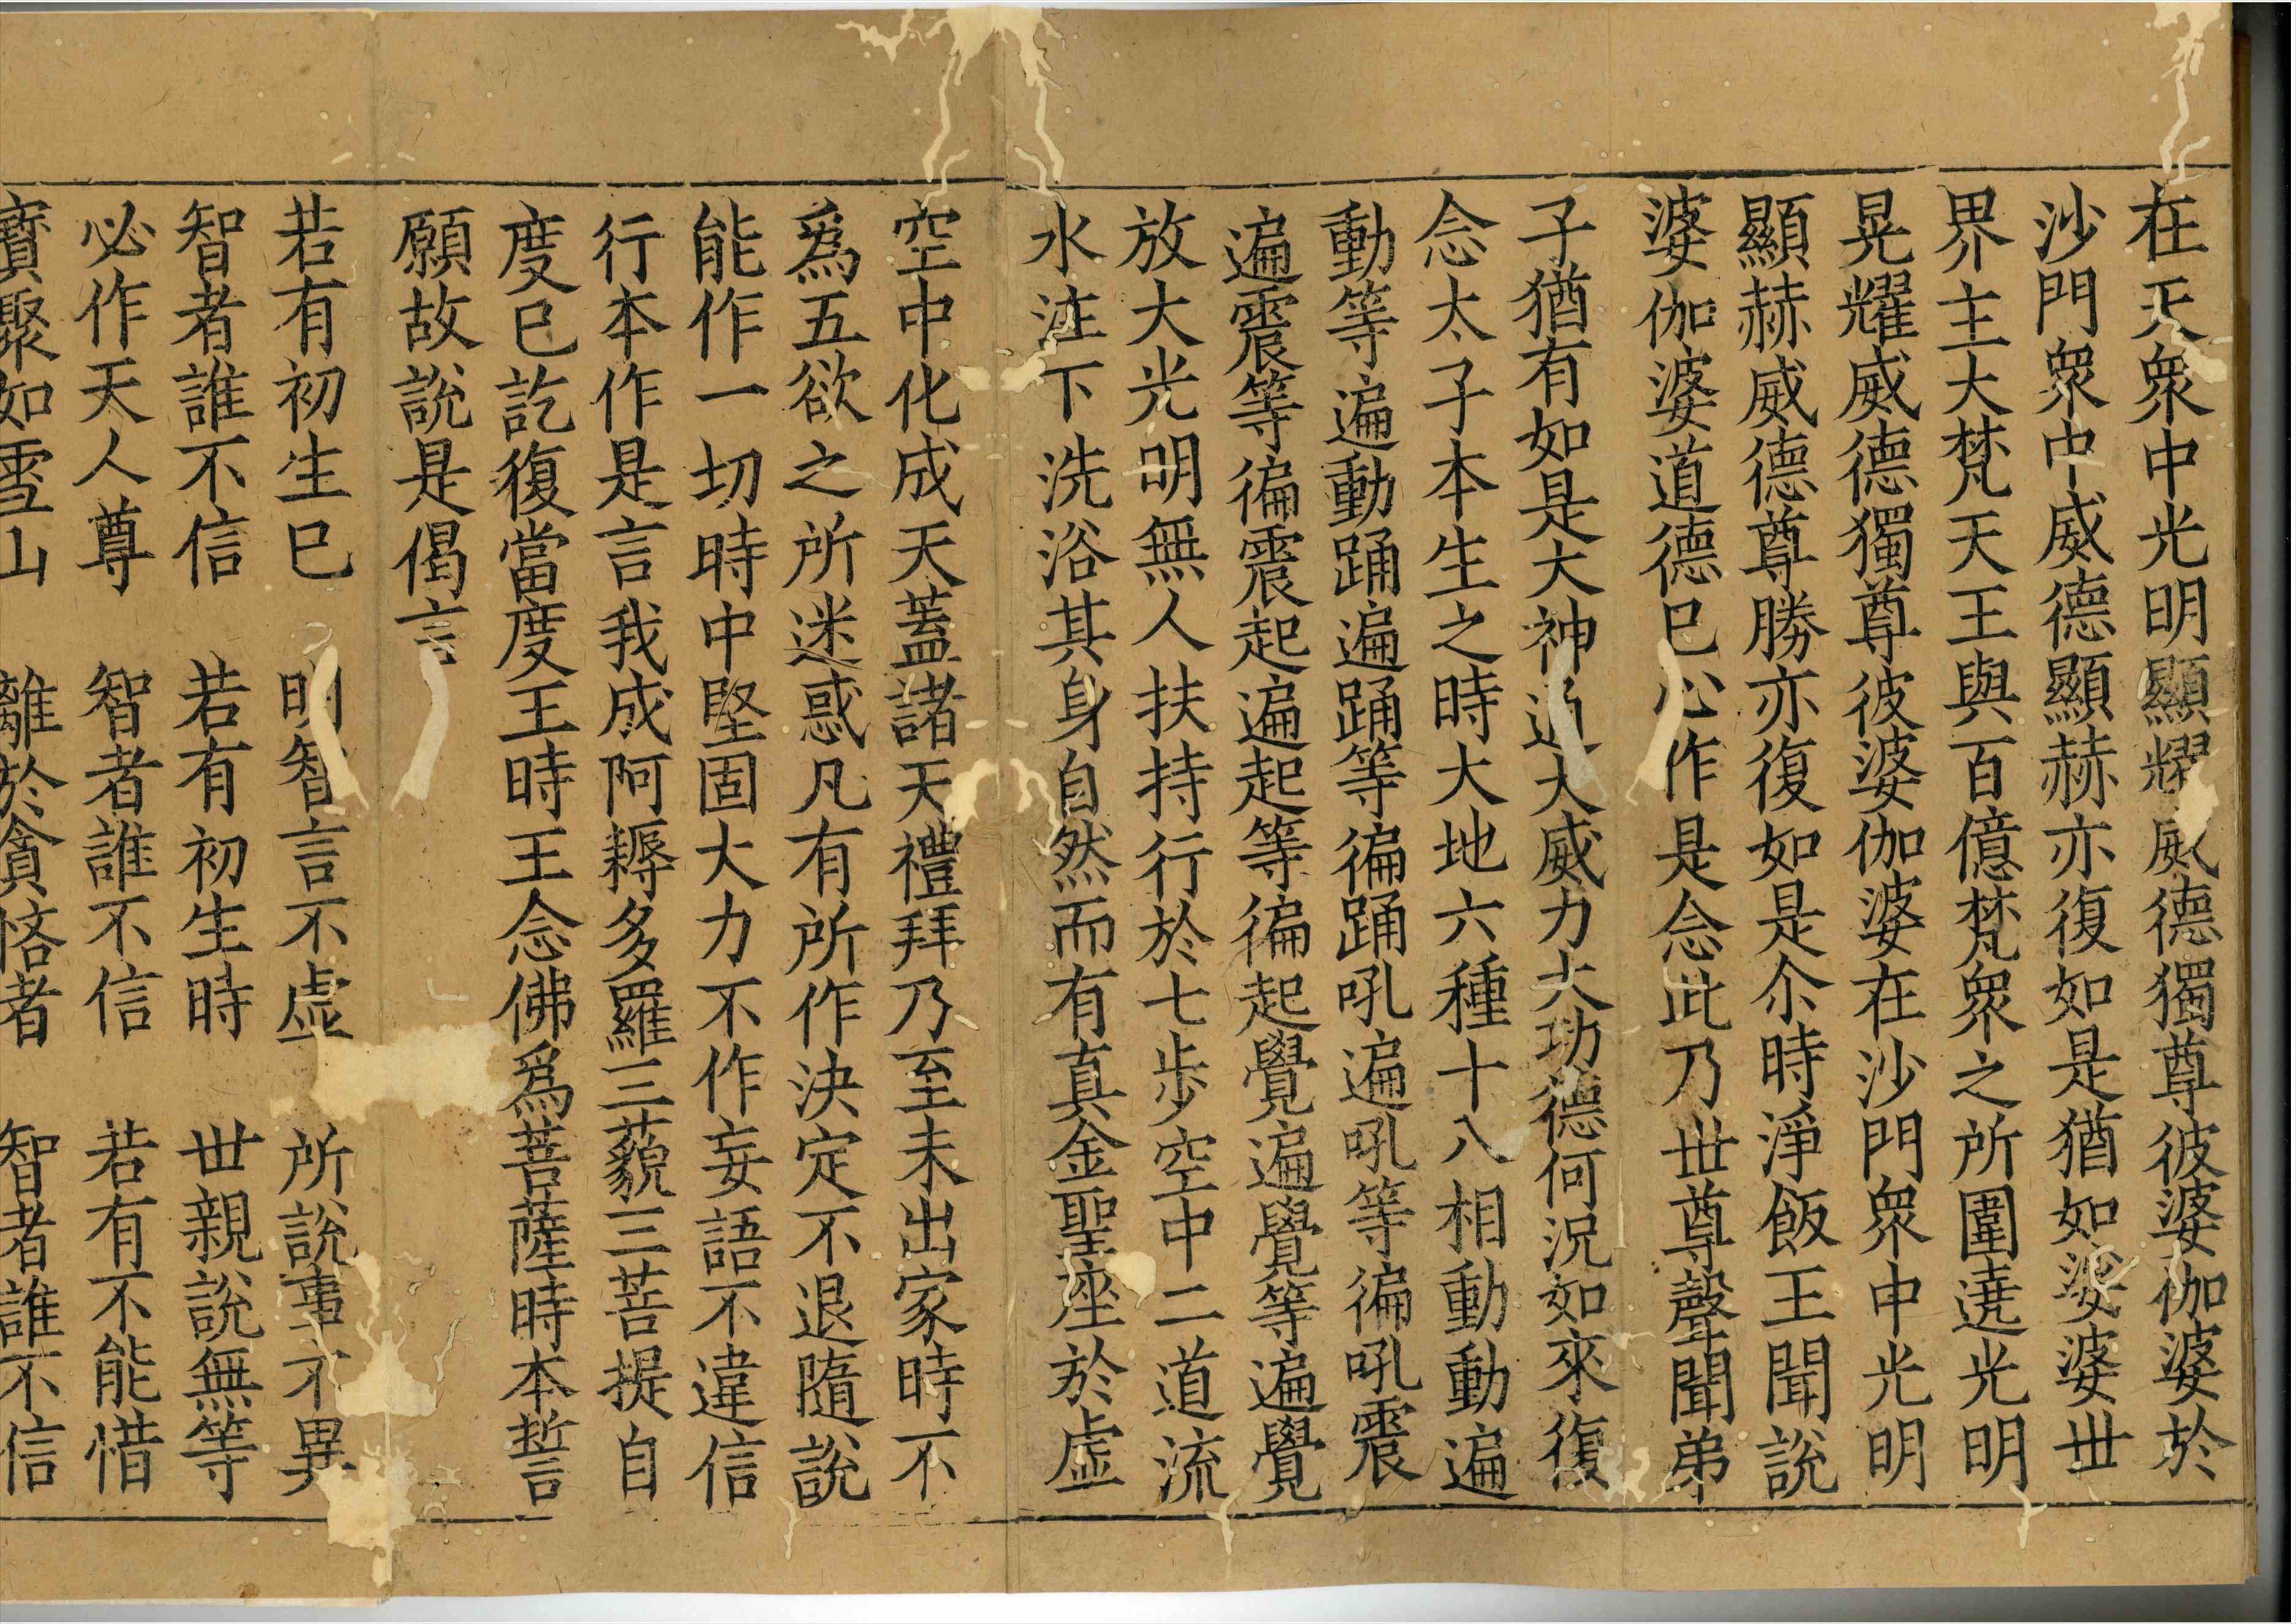 在天衆中光明顯耀威德獨尊彼婆伽婆於
沙門衆中威德顯赫亦復如是猶如娑婆世
界主大梵天王與百億梵衆之所圍遶光明
晃耀威德獨尊彼婆伽婆在沙門衆中光明
顯赫威德尊勝亦復如是尒時淨飯王聞說
婆伽婆道德已心作是念此乃世尊聲聞弟
子猶有如是大神通大威力大功德何況如來復
念太子本生之時大地六種十八相動動遍
動等遍動踊遍踊等徧踊吼遍吼等徧吼震
遍震等徧震起遍起等徧起覺遍覺等遍覺
放大光明無人扶持行於七步空中二道流
水注下洗浴其身自然而有真金聖座於虛
空中化成天蓋諸天禮拜乃至未出家時不
爲五欲之所迷惑凡有所作決定不退隨說
能作一切時中堅固大力不作妄語不違信
行本作是言我成阿耨多羅三藐三菩提自
度已訖復當度王時王念佛爲菩薩時本誓
願故說是偈言
若有初生已　明智言不虛　所說事不異
智者誰不信　若有初生時　世親說無等
必作天人尊　智者誰不信　若有不能惜
寶聚如雪山　離於貪悋者　智者誰不信